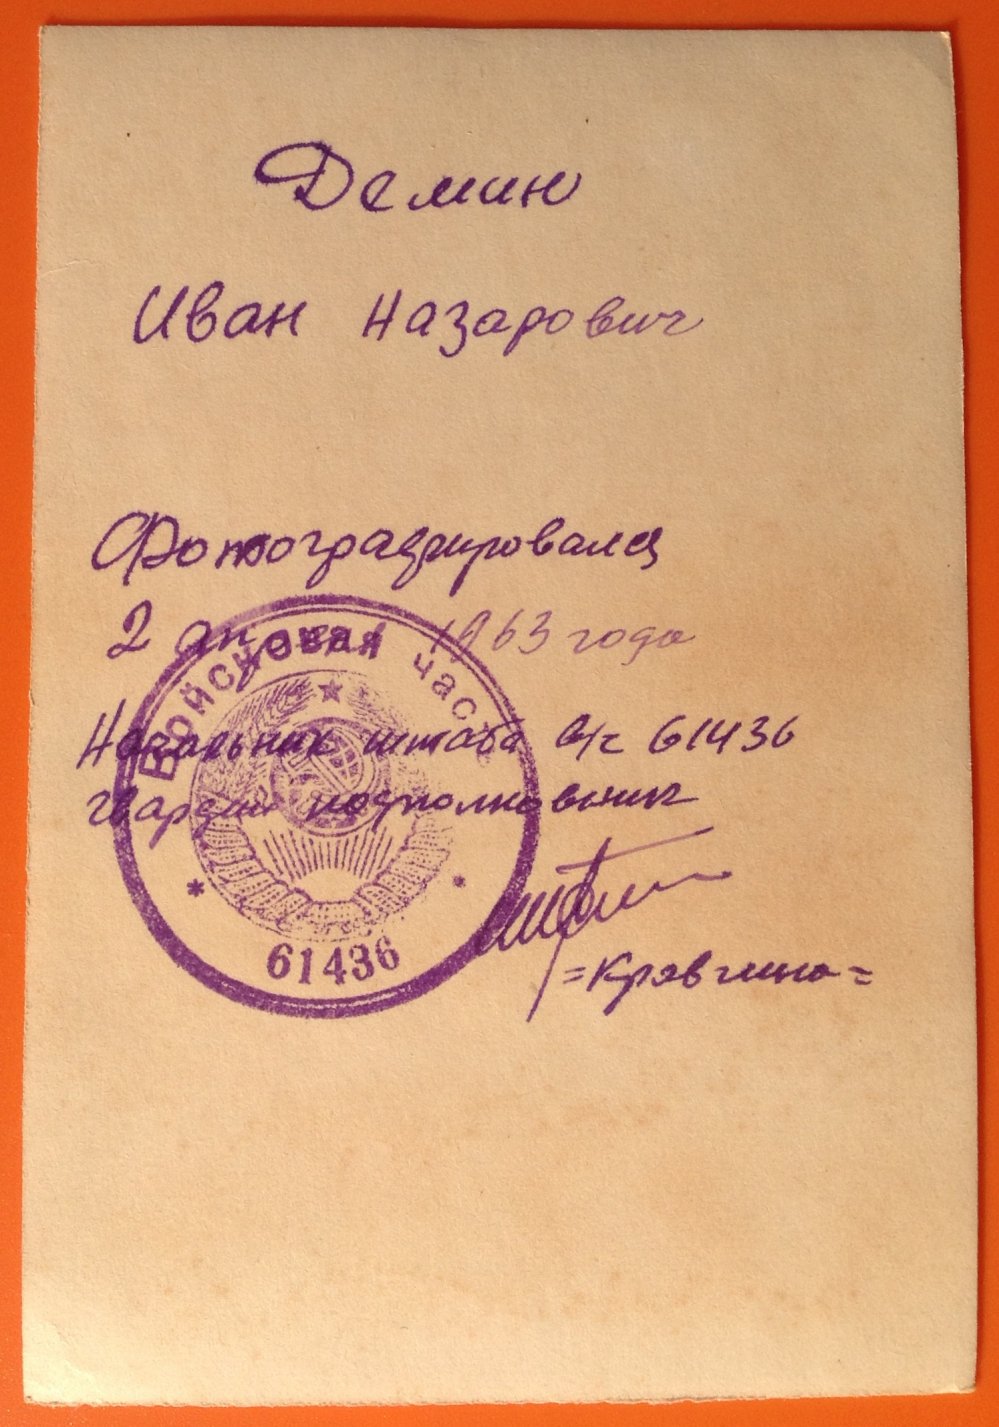 Демин
Иван Назарович
Фотографировался
2 апреля 1963 года
Войсковая часть
Начальник штаба в/ч 61436
гвардии подполковник
61436